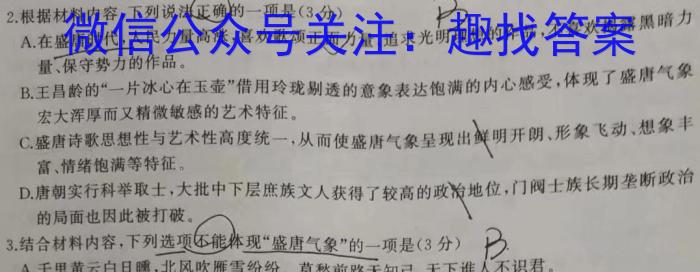 2.根据材料内容,下列说法正确的一项是(3分) B
A.在盛唐时代,人民力量高涨,喜欢歌颂正面力量,追求光明
微信公众号关注：趣找答案
露黑暗力
量、保守势力的作品。
B.王昌龄的“一片冰心在玉壶”借用玲珑剔透的意象表达饱满的内心感受,体现了盛唐气象
宏大浑厚而又精微敏感的艺术特征。
C.盛唐诗歌思想性与艺术性高度统一,从而使盛唐气象呈现出鲜明开朗、形象飞动、想象丰
富、情绪饱满等特征。
D.唐朝实行科举取士,大批中下层庶族文人获得了较高的政治地位,门阀士族长期垄断政治
的局面也因此被打破。
3.结合材料内容,下列选项不能体现“盛唐气象”的一项是(3分) B.
A.千里黄云白日曛,北风吹雁雪纷纷。莫愁前路无知己,天下谁人不识君。